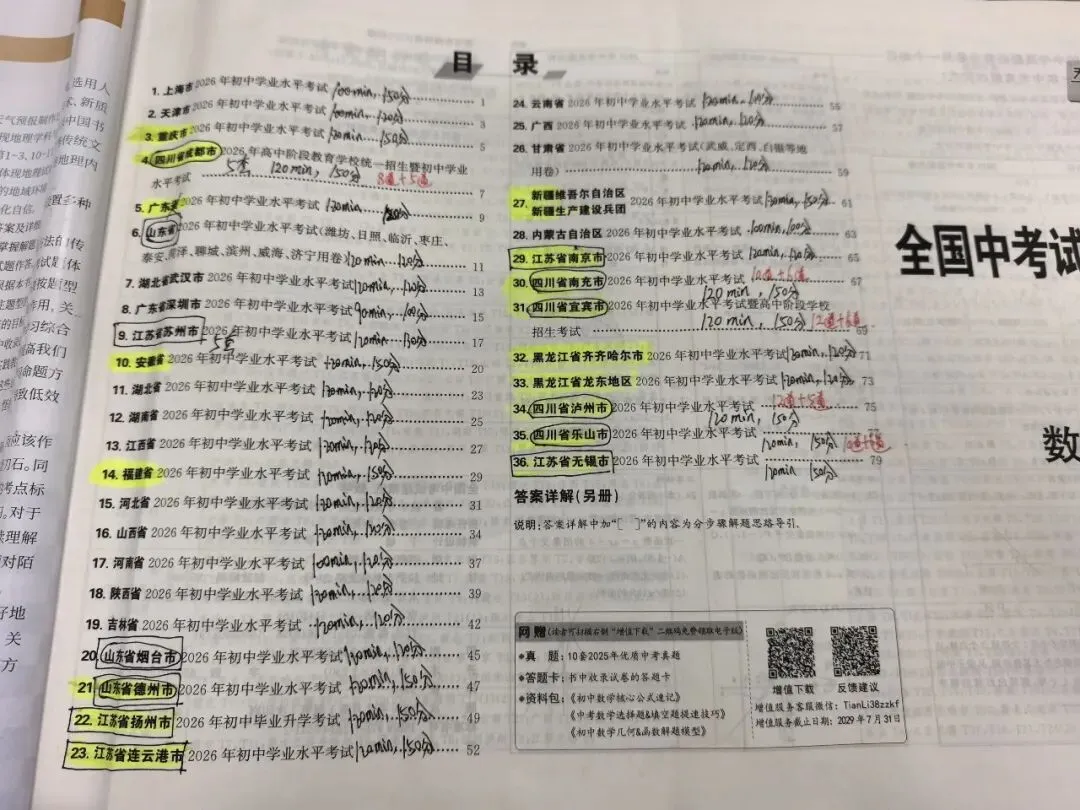 目 录
1. 上海市 2026 年初中学业水平考试 100min, 150分 1
2. 天津市 2026 年初中学业水平考试 100min, 120分 3
3. 重庆市 2026 年初中学业水平考试 120min, 150分 5
4. 四川省成都市 2026 年高中阶段教育学校统一招生暨初中学业
水平考试 5套 120min, 150分 8道+5道 7
5. 广东省 2026 年初中学业水平考试 120min, 120分 9
6. 山东省 2026 年初中学业水平考试(潍坊、日照、临沂、枣庄、
泰安、菏泽、聊城、滨州、威海、济宁用卷) 120min, 120分 11
7. 湖北省武汉市 2026 年初中学业水平考试 120min, 120分 13
8. 广东省深圳市 2026 年初中学业水平考试 90min, 100分 15
9. 江苏省苏州市 2026 年初中学业水平考试 120min, 130分 17
+5套
10. 安徽省 2026 年初中学业水平考试 120min, 150分 20
11. 湖北省 2026 年初中学业水平考试 120min, 120分 23
12. 湖南省 2026 年初中学业水平考试 120min, 120分 25
13. 江西省 2026 年初中学业水平考试 120min, 120分 27
14. 福建省 2026 年初中学业水平考试 120min, 150分 29
15. 河北省 2026 年初中学业水平考试 120min, 120分 31
16. 山西省 2026 年初中学业水平考试 120min, 120分 34
17. 河南省 2026 年初中学业水平考试 100min, 120分 37
18. 陕西省 2026 年初中学业水平考试 120min, 120分 39
19. 吉林省 2026 年初中学业水平考试 120min, 120分 42
20. 山东省烟台市 2026 年初中学业水平考试 120min, 120分 45
21. 山东省德州市 2026 年初中学业水平考试 120min, 150分 47
22. 江苏省扬州市 2026 年初中毕业升学考试 120min, 150分 49
23. 江苏省连云港市 2026 年初中学业水平考试 120min, 150分 52
24. 云南省 2026 年初中学业水平考试 120min, 100分 55
25. 广西 2026 年初中学业水平考试 120min, 120分 57
26. 甘肃省 2026 年初中学业水平考试(武威、定西、白银等地
用卷) 120min, 120分 59
27. 新疆维吾尔自治区
新疆生产建设兵团 2026 年初中学业水平考试 120min, 150分 61
28. 内蒙古自治区 2026 年初中学业水平考试 100min, 100分 63
29. 江苏省南京市 2026 年初中学业水平考试 120min, 120分 65
30. 四川省南充市 2026 年初中学业水平考试 10道+6道 67
120min, 150分
31. 四川省宜宾市 2026 年初中学业水平考试暨高中阶段学校
招生考试 120min, 150分 12道+6道 69
32. 黑龙江省齐齐哈尔市 2026 年初中学业水平考试 120min, 120分 71
33. 黑龙江省龙东地区 2026 年初中学业水平考试 120min, 120分 73
34. 四川省泸州市 2026 年初中学业水平考试 12道+5道 75
120min, 150分
35. 四川省乐山市 2026 年初中学业水平考试 77
120min, 150分 10道+6道
36. 江苏省无锡市 2026 年初中学业水平考试 79
120min 150分
答案详解(另册)
说明:答案详解中加“[ ]”的内容为分步骤解题思路导引。
网赠(读者可扫描右侧“增值下载”二维码免费领取电子版)
•真 题:10套2025年优质中考真题
•答题卡:书中收录试卷的答题卡
•资料包:《初中数学核心公式速记》
《中考数学选择题&填空题提速技巧》
《初中数学几何&函数解题模型》
增值下载 反馈建议
增值服务客服微信:TianLi38zzkf
增值服务截止日期:2029 年 7 月 31 日
全国中考试
数